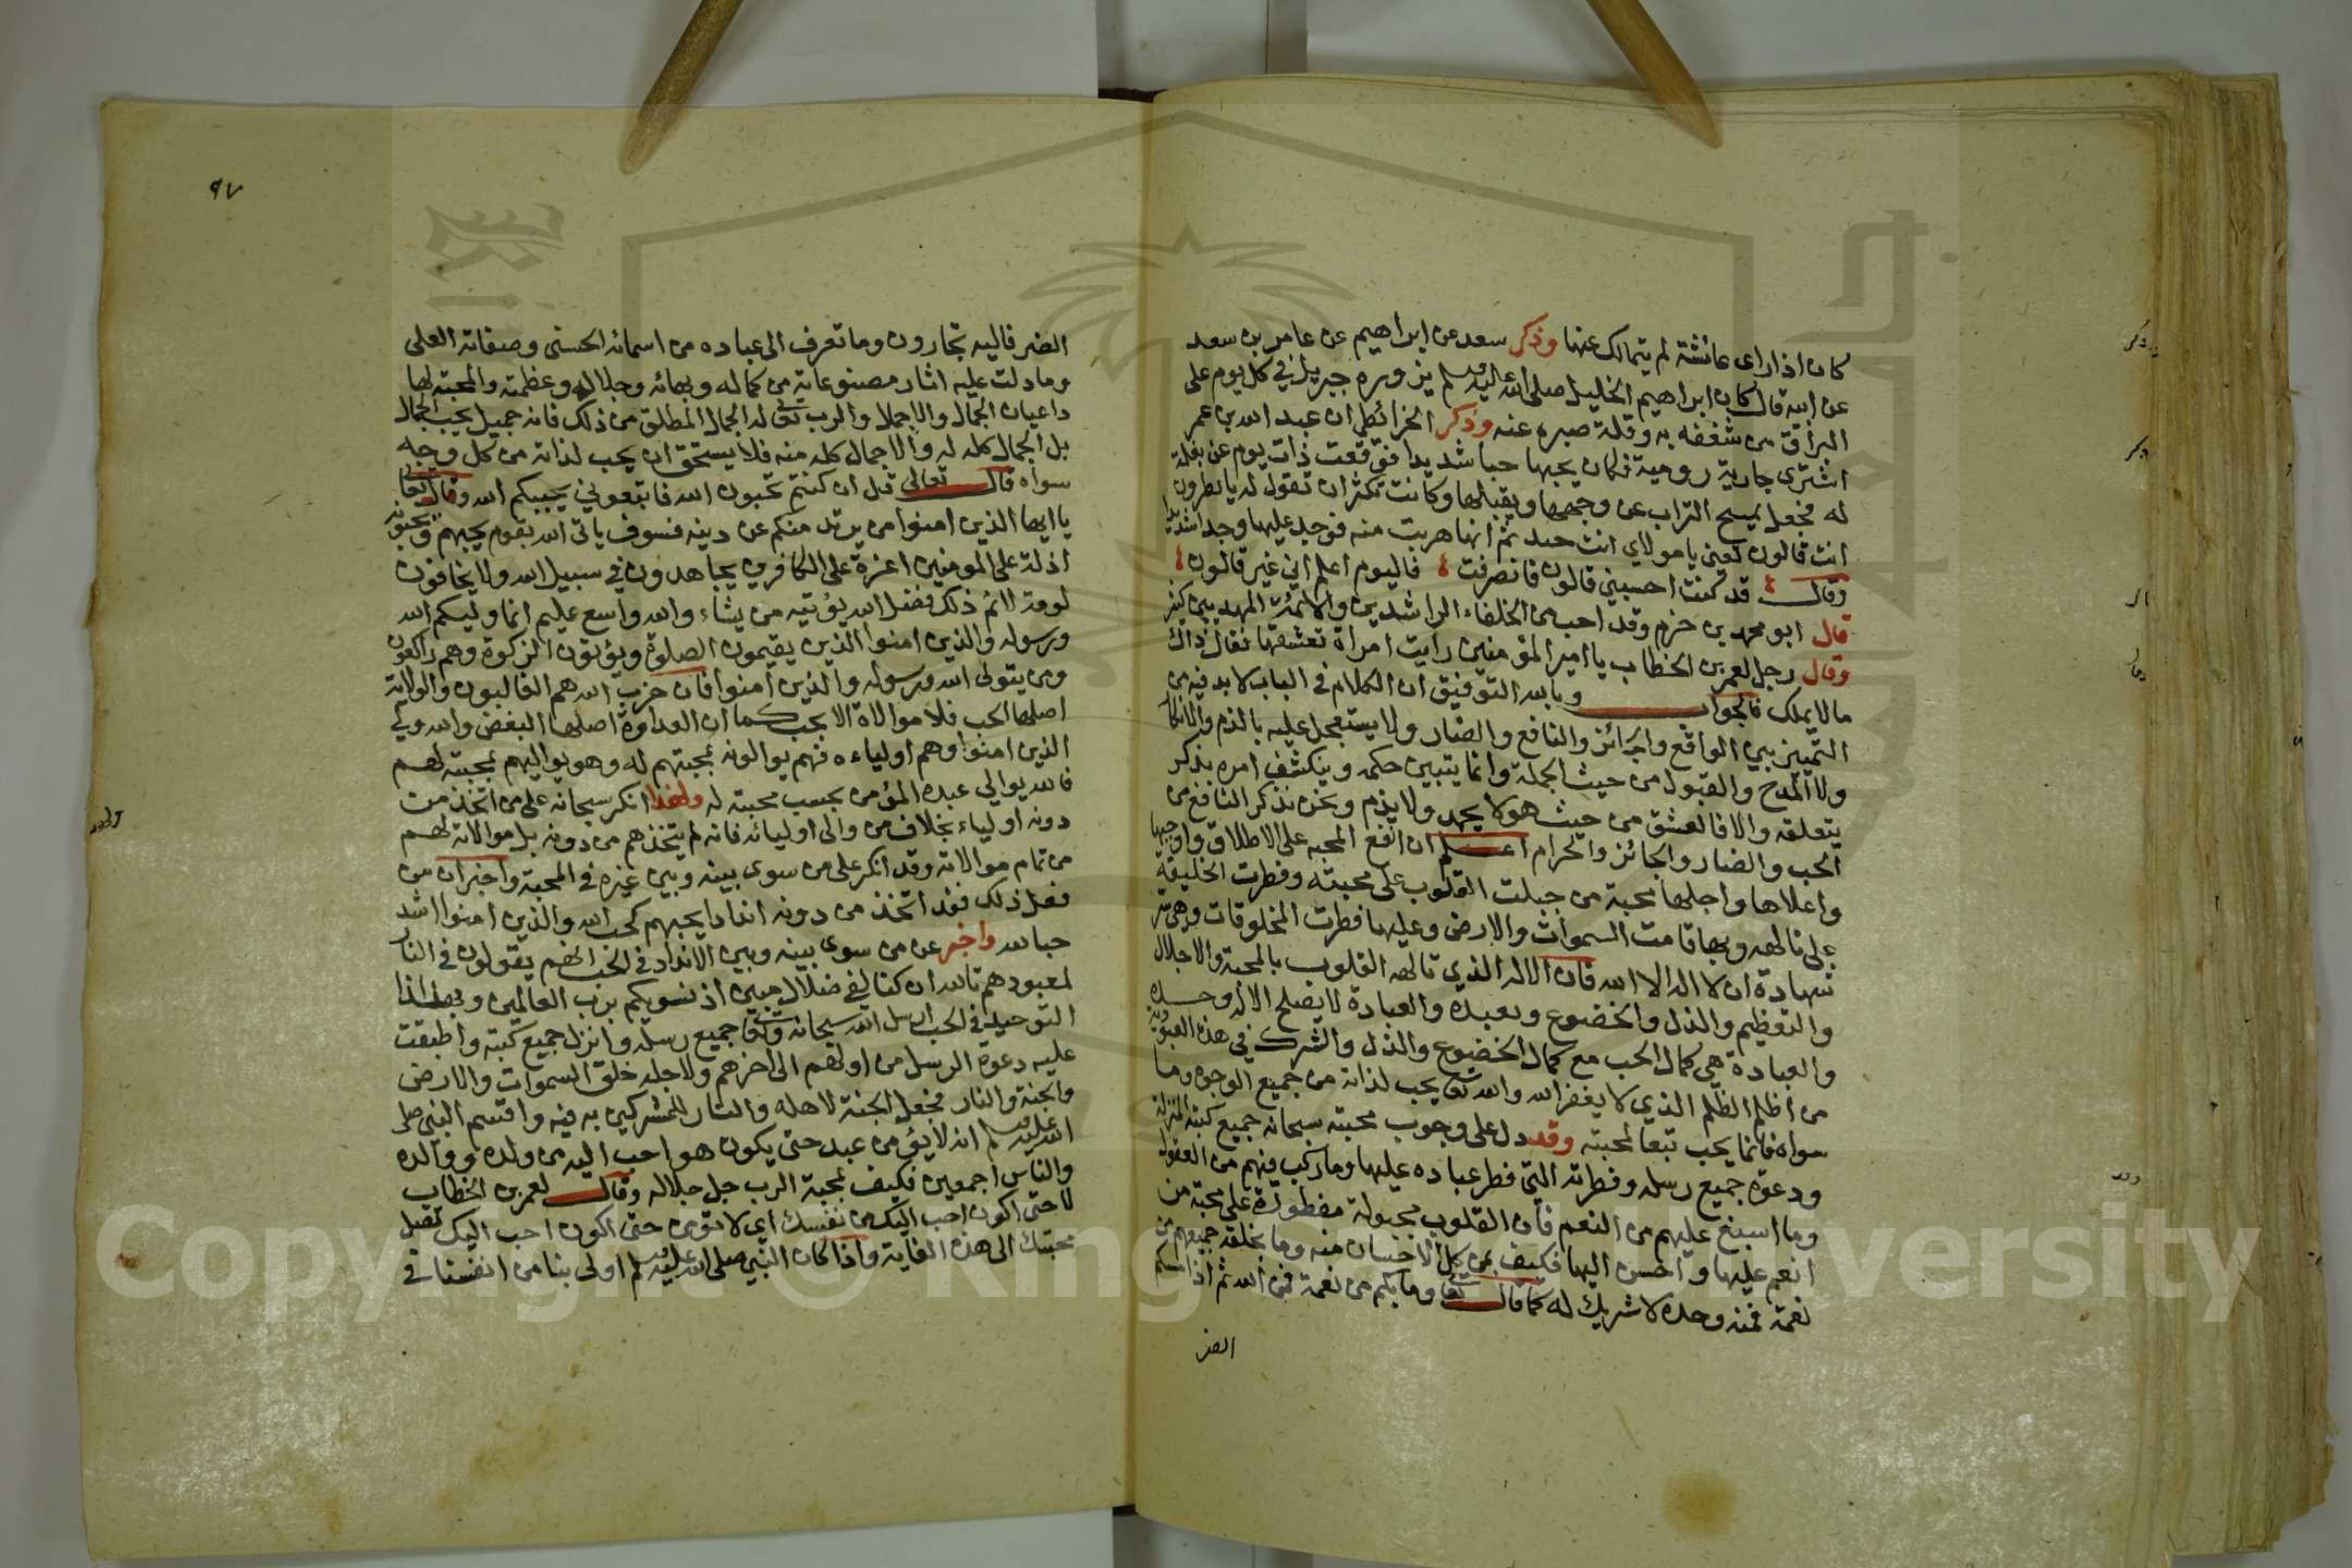 كان اذا راى عائشة لم يتمالك عنها وذكر سعد عن ابراهيم عن عامر بن سعد
عن ابيه قال كان ابراهيم الخليل صلى الله عليه وسلم يزوره جبريل في كل يوم على
البراق من شغفه به وقلة صبره عنه وذكر الخرائطي ان عبد الله بن عمر
اشترى جارية رومية فكان يحبها حبا شديدا فوقعت ذات يوم عن بغلة
له فجعل يمسح التراب عن وجهها ويقبلها وكانت تكثر ان تقول له يا بطرون
انت قالون تعني يا مولاي انت جيد ثم انها هربت منه فوجد عليها وجدا شديدا
وقال قد كنت احسبني قالون فانصرفت فاليوم اعلم اني غير قالون
قال ابو محمد بن حزم وقد احب من الخلفاء الراشدين والائمة المهديين كثير
وقال رجل لعمر بن الخطاب يا امير المؤمنين رايت امراة فعشقتها فقال ذاك
مالا يملك فالجواب وبالله التوفيق ان الكلام في الباب لا بد فيه من
التمييز بين الواقع والجائز والنافع والضار ولا يستعجل عليه بالذم والانكار
ولا المدح والقبول من حيث الجملة وانما يتبين حكمه وينكشف امره بذكر
متعلقه والا فالعشق من حيث هو لا يحمد ولا يذم ونحن نذكر النافع من
الحب والضار والجائز والحرام اعلم ان انفع المحبه على الاطلاق واوجبها
واعلاها واجلها محبة من جبلت القلوب على محبته وفطرت الخليقة
على تالهه وبها قامت السموات والارض وعليها فطرت المخلوقات وهي سر
شهادة ان لا اله الا الله فان الاله الذي تالهه القلوب بالمحبة والاجلال
والتعظيم والذل والخضوع وتعبده والعبادة لا يصلح الا له وحده
والعبادة هي كمال الحب مع كمال الخضوع والذل والشرك في هذه العبودية
من اظلم الظلم الذي لا يغفر الله والله تعالى يحب لذاته من جميع الوجوه وما
سواه فانما يحب تبعا لمحبته وقد دل على وجوب محبته سبحانه جميع كتبه المنزلة
ودعوة جميع رسله وفطرته التي فطر عباده عليها وما ركب فيهم من العقول
وما اسبغ عليهم من النعم فان القلوب مجبولة مفطورة على محبة من
انعم عليها واحسن اليها فكيف بمن كل الاحسان منه وما بخلقه جميعهم من
نعمة فمنه وحده لا شريك له كما قال تعالى وما بكم من نعمة فمن الله ثم اذا مسكم
الضر
٩٧
الضر فاليه تجارون وما تعرف الى عباده من اسمائه الحسنى وصفاته العلى
وما دلت عليه اثار مصنوعاته من كماله وبهائه وجلاله وعظمته والمحبة لها
داعيان الجمال والاجلال والرب تعالى له الجمال المطلق من ذلك فانه جميل يحب الجمال
بل الجمال كله له والاجمال كله منه فلا يستحق ان يحب لذاته من كل وجه
سواه قال تعالى قل ان كنتم تحبون الله فاتبعوني يحببكم الله وقال تعالى
يا ايها الذين امنوا من يرتد منكم عن دينه فسوف ياتي الله بقوم يحبهم ويحبونه
اذلة على المومنين اعزة على الكافرين يجاهدون في سبيل الله ولا يخافون
لومة لائم ذلك فضل الله يؤتيه من يشاء والله واسع عليم انما وليكم الله
ورسوله والذين امنوا الذين يقيمون الصلوة ويؤتون الزكوة وهم راكعون
ومن يتولى الله ورسوله والذين امنوا فان حزب الله هم الغالبون والولاية
اصلها الحب فلا موالاة الا بحب كما ان العداوة اصلها البغض والله ولي
الذين امنوا وهم اولياءه فهم يوالونه بمحبتهم له وهو يواليهم بمحبته لهم
فالله يوالي عبده المؤمن بحسب محبته له ولهذا انكر سبحانه على من اتخذ من
دونه اولياء بخلاف من والى اوليائه فانه لم يتخذهم من دونه بل موالاته لهم
من تمام موالاته وقد انكر على من سوى بينه وبين غيره في المحبة واخبر ان من
فعل ذلك فقد اتخذ من دونه اندادا يحبهم كحب الله والذين امنوا اشد
حبا لله واخبر عن من سوى بينه وبين الانداد في الحب انهم يقولون في النار
لمعبودهم تالله ان كنا لفي ضلال مبين اذ نسويكم برب العالمين وبهذا
التوحيد في الحب ارسل الله سبحانه وتعالى جميع رسله وانزل جميع كتبه واطبقت
عليه دعوة الرسل من اولهم الى اخرهم ولاجله خلق السموات والارض
والجنة والنار فجعل الجنة لاهله والنار للمشركين به فيه واقسم النبي صلى
الله عليه وسلم انه لا يؤمن عبد حتى يكون هو احب اليه من ولده ووالده
والناس اجمعين فكيف بمحبة الرب جل جلاله وقال لعمر بن الخطاب
لا حتى اكون احب اليك من نفسك اي لا تؤمن حتى اكون احب اليك تصل
محبتك الى هذه الغاية واذا كان النبي صلى الله عليه وسلم اولى بنا من انفسنا في
Copyright © King Saud University